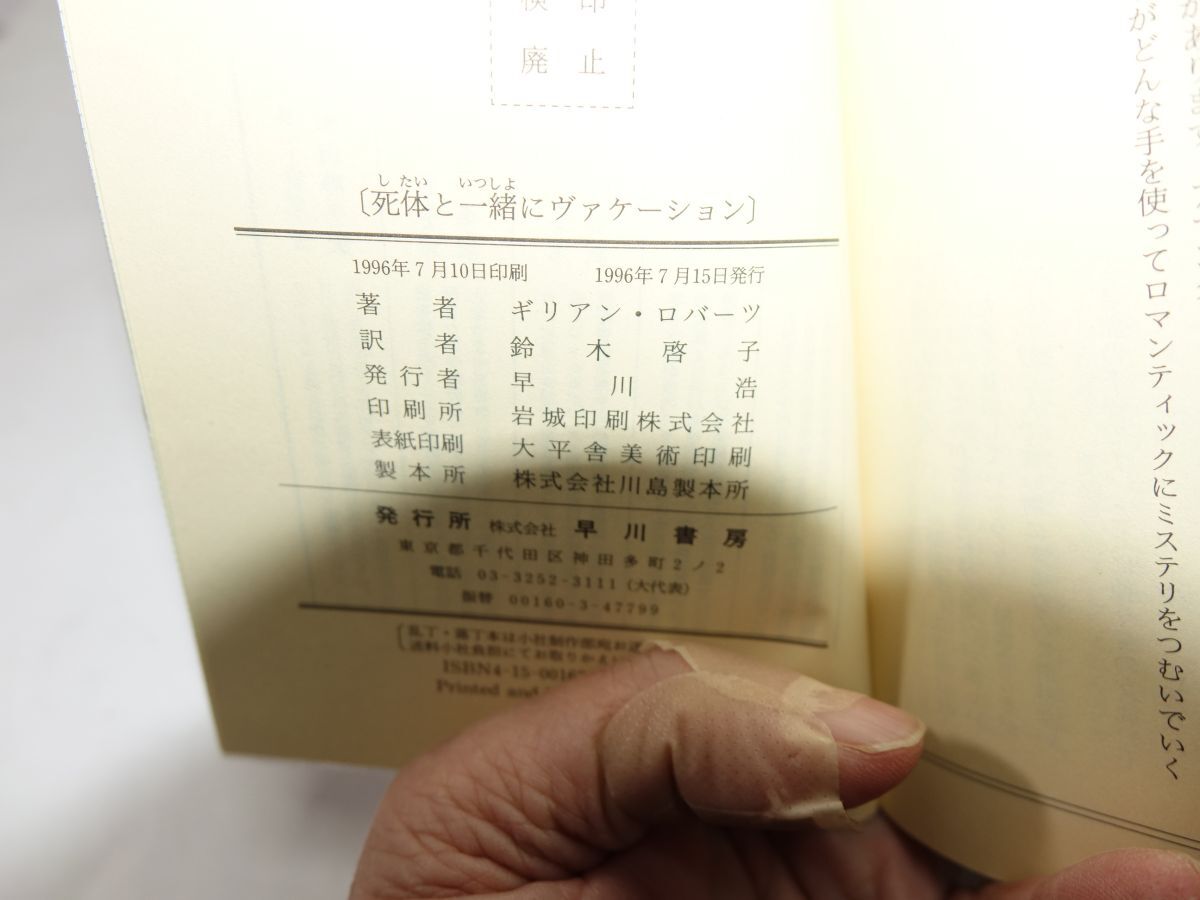 検印
廃止
したい いつしよ
〔死体と一緒にヴァケーション〕
1996年7月10日印刷 1996年7月15日発行
著者 ギリアン・ロバーツ
訳者 鈴木啓子
発行者 早川浩
印刷所 岩城印刷株式会社
表紙印刷 大平舎美術印刷
製本所 株式会社川島製本所
発行所 株式会社 早川書房
東京都千代田区神田多町2ノ2
電話 03-3252-3111(大代表)
振替 00160-3-47799
乱丁・落丁本は小社制作部宛お送
送料小社負担にてお取りかえ
ISBN4-15-00167
Printed and
がどんな手を使ってロマンティックにミステリをつむいでいく